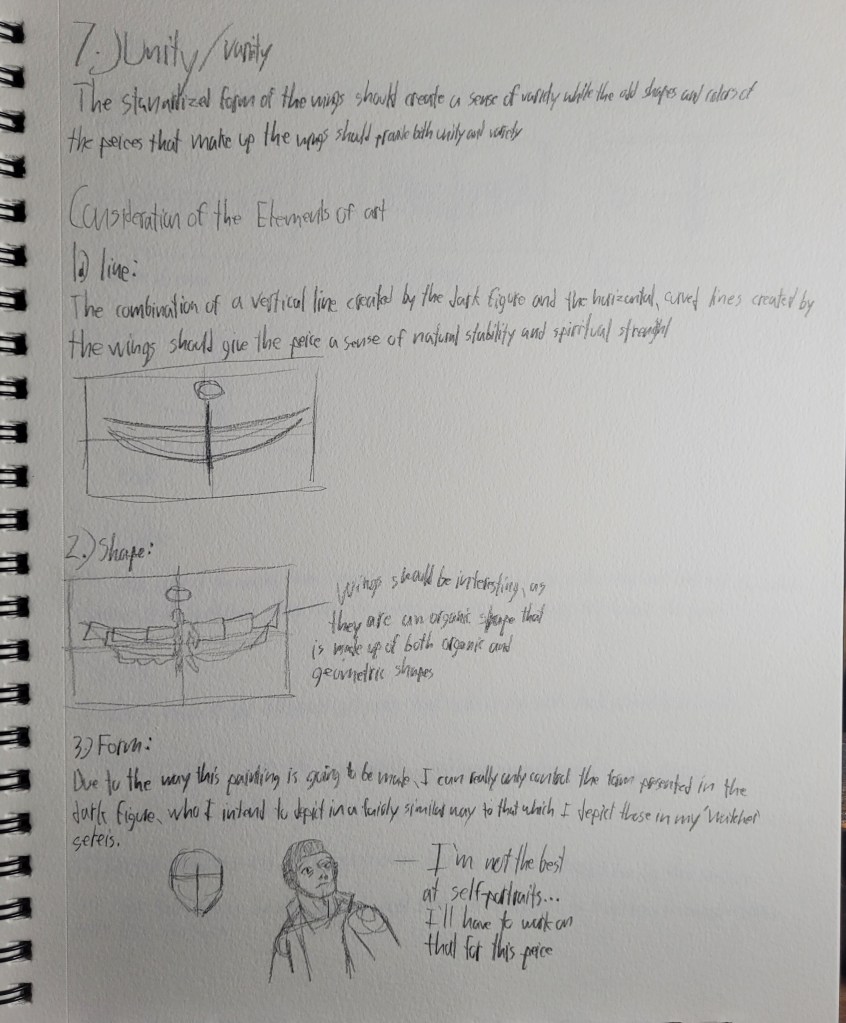 7.) Unity/varity
The form of the wings should create a sense of variety while the odd shapes and colors of
the peices that make up the wings should both unity and variety
Consideration of the Elements of art
1.) line:
The combination of a vertical line created by the dark figure and the horizontal, curved lines created by
the wings should give the peice a sense of natural stability and spiritual strenght
2.) Shape:
Wings should be interesting, as
they are an organic shape that
is made up of both organic and
geometric shapes
3.) Form:
Due to the way this painting is going to be made, I can really only control the form presented in the
dark figure, who I intend to depict in a fairly similar way to that which I depict those in my
sereis.
I'm not the best
at self-portraits...
I'll have to work on
that for this peice